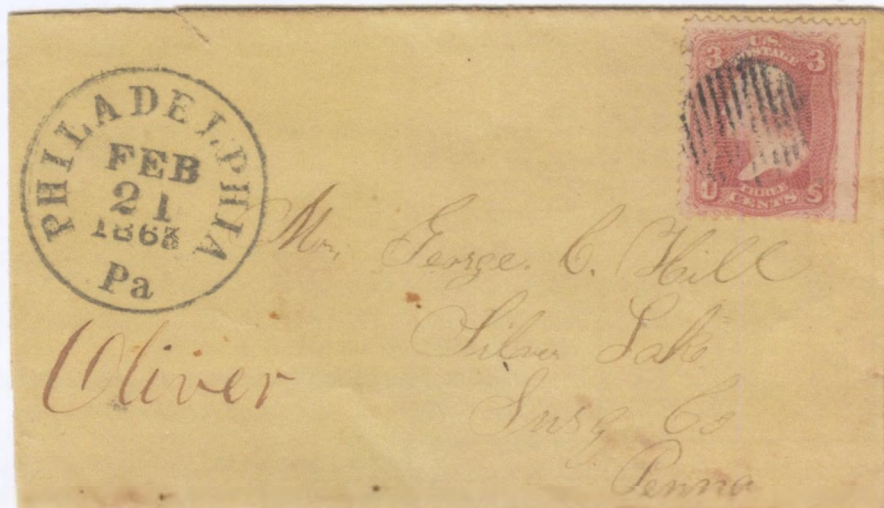 PHILADELPHIA
FEB
21
1863
Pa
3 U.S. POSTAGE 3
U THREE CENTS S
Mr. George. C. Hill
Silver Lake
Susq Co
Penna
Oliver